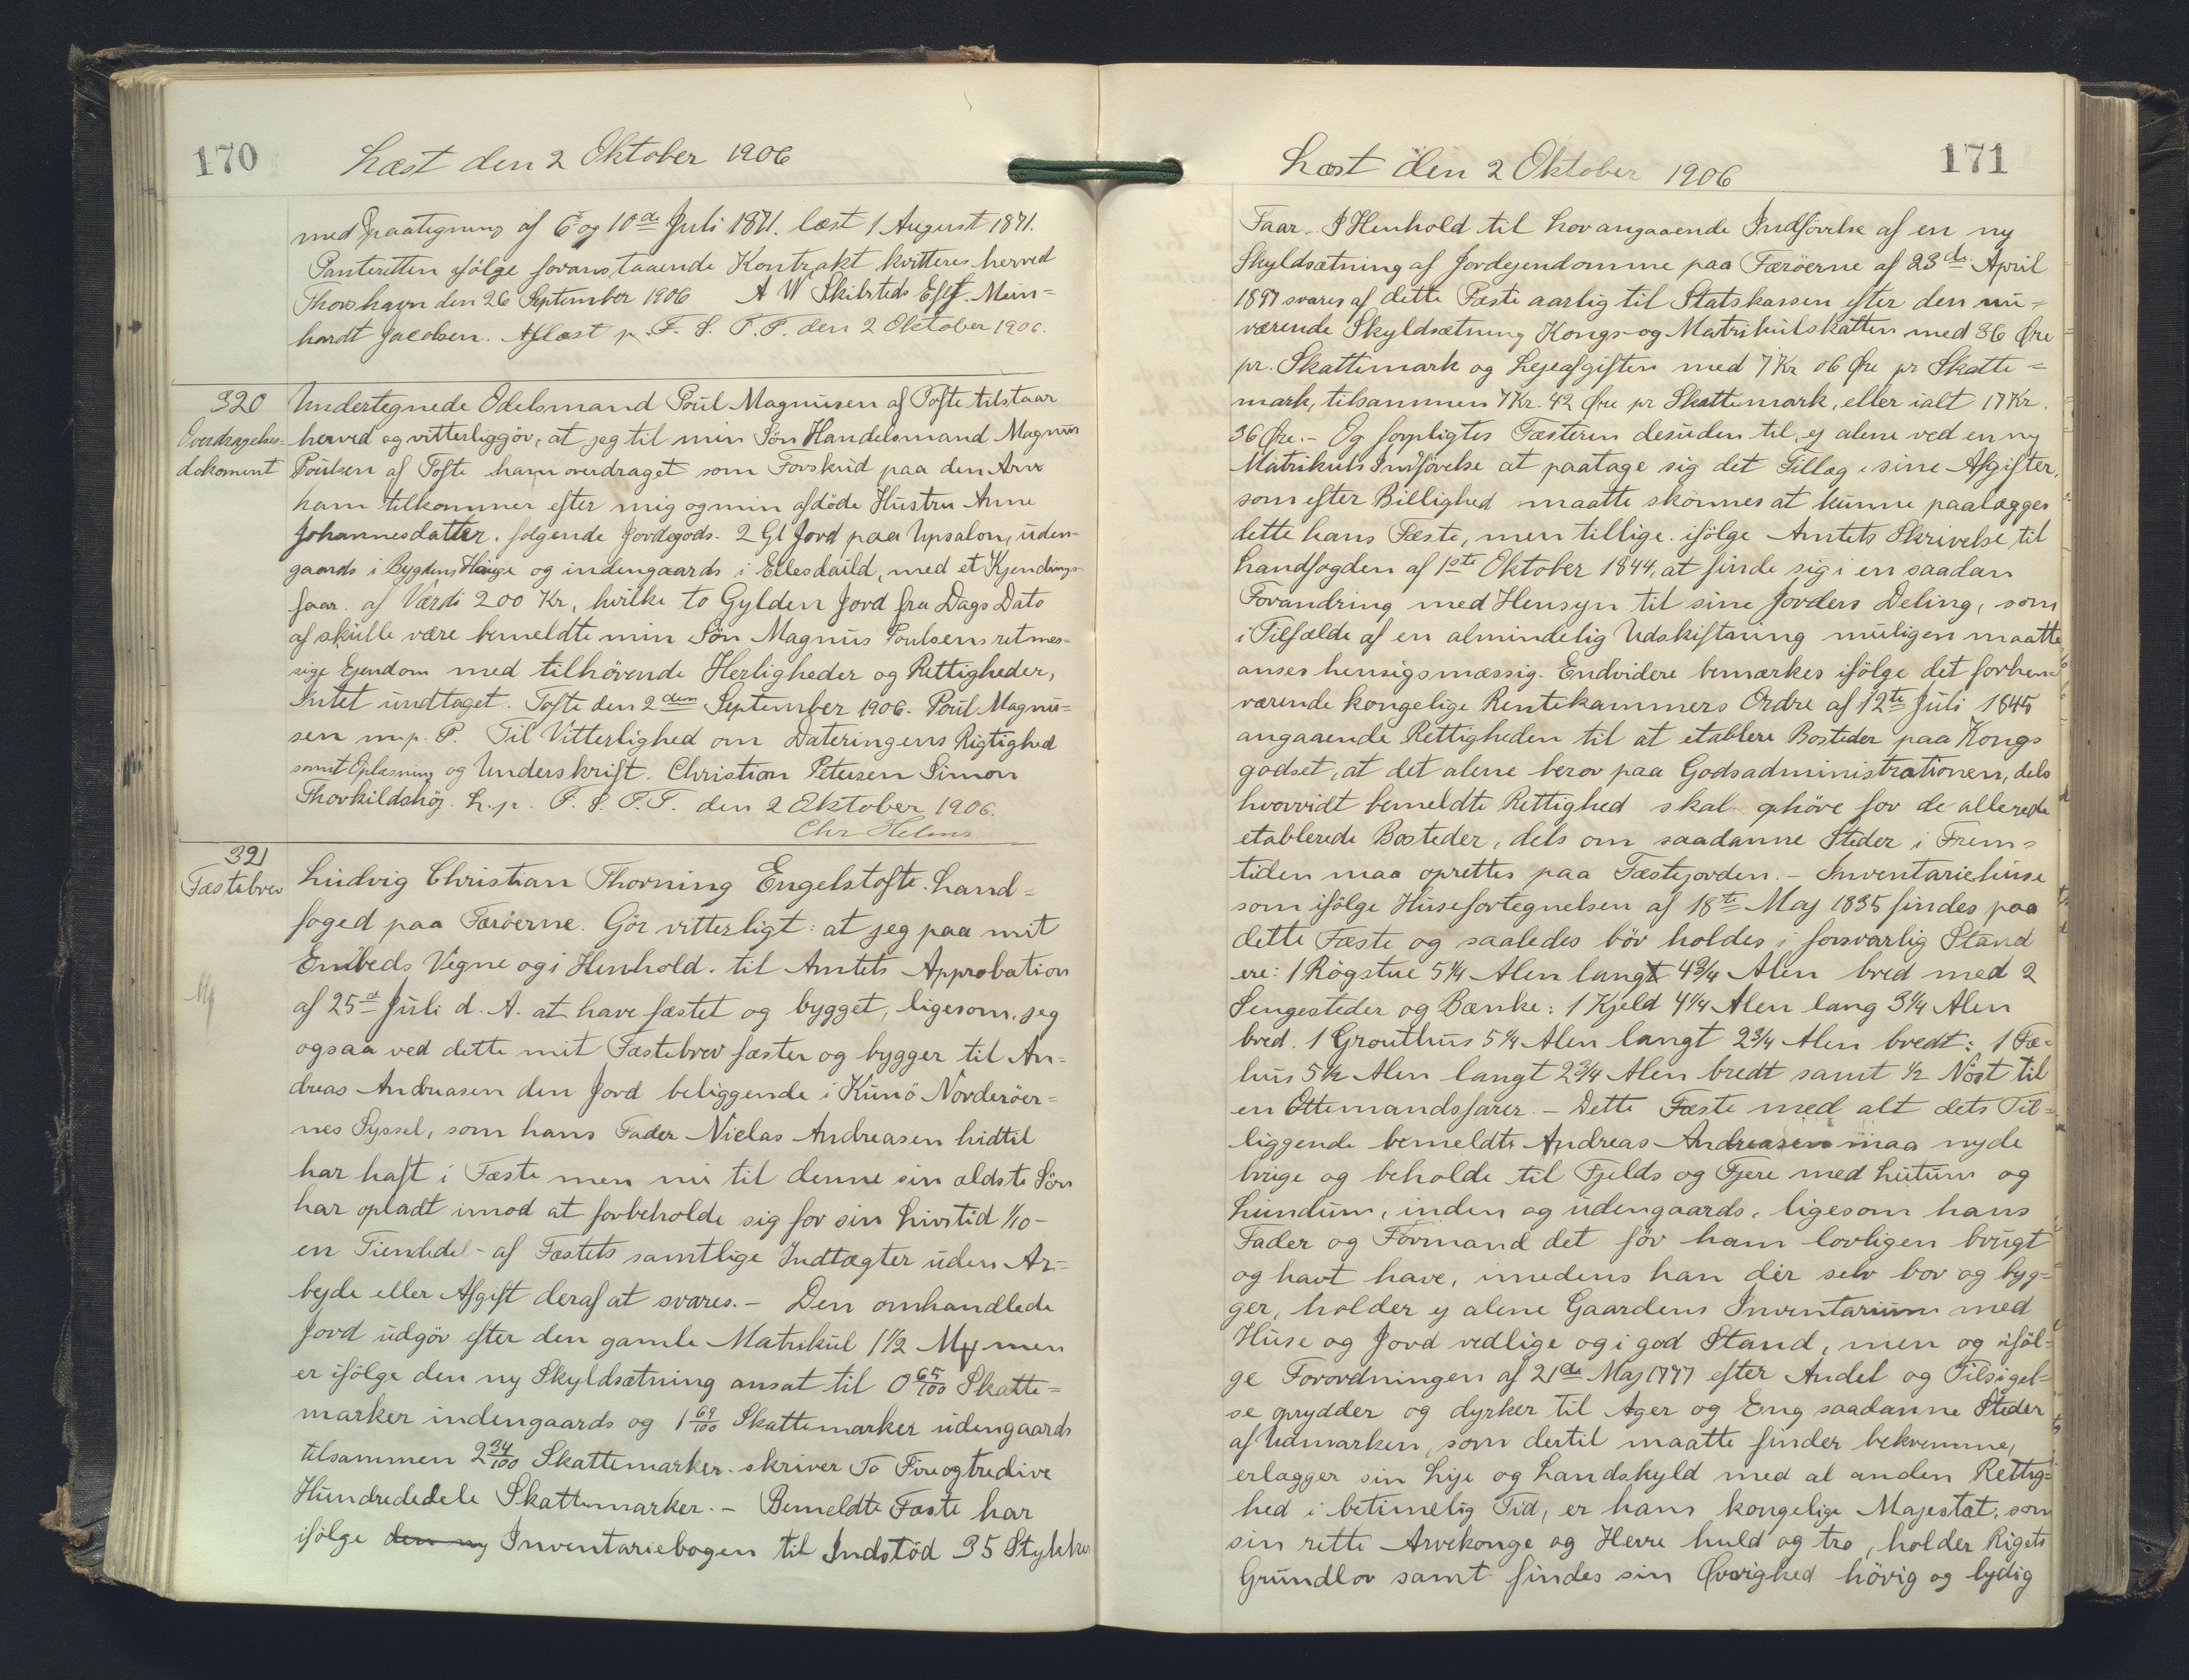 170
Læst den 2 Oktober 1906
med Paategning af 6 og 10de Juli 1871. læst 1 August 1871.
Panteretten ifölge foranstaaende Kontrakt kvitteres herved
Thorshavn den 26 September 1906 A W Skibsteds Eftf. Mein-
hardt Jacobsen. Aflæst p. F. S. P. P. den 2 Oktober 1906.
320
Overdragelses-
dokument
Undertegnede Odelsmand Poul Magnusen af Tofte tilstaar
herved og vitterliggör, at jeg til min Sön Handelsmand Magnus
Poulsen af Tofte havn overdraget som Forskud paa den Arv
ham tilkommer efter mig og min afdöde Hustru Anne
Johannesdatter. folgende Jordegods. 2 Gl Jord paa Upsalon, uden-
gaards i Bygdens Hauge og indengaards i Ellesdaild, med et Kjendings-
faar. af Værdi 200 Kr, hvilke to Gylden Jord fra Dags Dato
af skulle være bemeldte min Sön Magnus Poulsens retmes-
sige Ejendom med tilhörende Herligheder og Rettigheder,
Intet undtaget. Tofte den 2den September 1906. Poul Magnu-
sen m.p. P. Til Vitterlighed om Dateringens Rigtighed
samt Oplæsning og Underskrift. Christian Petersen Simon
Thorkildshöj. L. p. F. S. P. T. den 2 Oktober 1906.
Chr Helms.
321
Fæstebrev
Ludvig Christian Thorning Engelstofte. Land-
foged paa Færöerne. Gör vitterligt: at jeg paa mit
Embeds Vegne og i Henhold. til Amtets Approbation
af 25de Juli d. A. at have fæstet og bygget, ligesom jeg
ogsaa ved dette mit Fæstebrev fæster og bygger til An-
dreas Andreasen den Jord beliggende i Kunö Norderöer-
nes Syssel, som hans Fader Nielas Andreasen hidtil
har haft i Fæste men nu til denne sin ældste Sön
har opladt imod at forbeholde sig for sin Livstid 1/10 -
en Tiendedel - af Fæstets samtlige Indtægter uden Ar-
bejde eller Afgift deraf at svares. - Den omhandlede
Jord udgör efter den gamle Matrikul 1 1/2 Mf men
er ifölge den ny Skyldsætning ansat til 0 65/100 Skatte-
marker indengaards og 1 69/100 Skattemarker udengaards
tilsammen 2 34/100 Skattemarker. skriver To Fireogtredive
Hundrededele Skattemarker. - Bemeldte Fæste har
ifölge den ny Inventariebogen til Indstöd 35 Stykker
171
Læst den 2 Oktober 1906
Faar. I Henhold til Lov angaaende Indförelse af en ny
Skyldsætning af Jordejendomme paa Færöerne af 23de April
1897 svares af dette Fæste aarlig til Statskassen efter den nu-
værende Skyldsætning Kongs- og Matrikulskatten med 36 Øre
pr. Skattemark og Lejeafgiften med 7 Kr 06 Øre pr Skatte-
mark, tilsammen 7 Kr. 42 Øre pr Skattemark, eller ialt 17 Kr.
36 Øre. - Og forpligtes Fæsteren desuden til, ej alene ved en ny
Matrikuls Indförelse at paatage sig det Tillæg i sine Afgifter,
som efter Billighed maatte skönnes at kunne paalægges
dette hans Fæste, men tillige. ifölge Amtets Skrivelse til
Landfogden af 1ste Oktober 1844, at finde sig i en saadan
Forandring med Hensyn til sine Jorders Deling, som
i Tilfælde af en almindelig Udskiftning muligen maatte
anses hensigsmæssig. Endvidere bemærkes ifölge det forhen-
værende kongelige Rentekammers Ordre af 12te Juli 1845
angaaende Rettigheden til at etablere Bosteder paa Kongs
godset, at det alene beror paa Godsadministrationen, dels
hvorvidt bemeldte Rettighed skal ophöre for de allerede
etablerede Bosteder, dels om saadanne Steder i Frem-
tiden maa oprettes paa Fæstejorden. - Inventariehuse
som ifölge Husefortegnelsen af 18te Maj 1835 findes paa
dette Fæste og saaledes bör holdes i forsvarlig Stand
ere: 1 Rögstue 5 1/4 Alen langt 4 3/4 Alen bred med 2
Sengesteder og Bænke: 1 Kjeld 4 1/4 Alen lang 3 1/4 Alen
bred. 1 Grouthus 5 1/4 Alen langt 2 3/4 Alen bredt: 1 Fæ-
hus 5 1/2 Alen langt 2 3/4 Alen bredt samt 1/2 Nöst til
en Ottemandsfarer. - Dette Fæste med alt dets Til-
liggende bemeldte Andreas Andreasen maa nyde
bruge og beholde til Fjelds og Fjere med Lutum og
Lundum, inden og udengaards, ligesom hans
Fader og Formand det för ham lovligen brugt
og havt have, imedens han dér selv bor og byg-
ger, holder ej alene Gaardens Inventarium med
Huse og Jord vedlige og i god Stand, men og iföl-
ge Forordningen af 21de Maj 1777 efter Andel og Tilsigel-
se oprydder og dyrker til Ager og Eng saadanne Steder
af Udmarken, som dertil maatte findes bekvemme,
erlægger sin Leje og Landskyld med al anden Rettig-
hed i betimelig Tid, er hans kongelige Majestæt, som
sin rette Arvekonge og Herre huld og tro, holder Rigets
Grundlov samt findes sin Øvrighed hörig og lydig